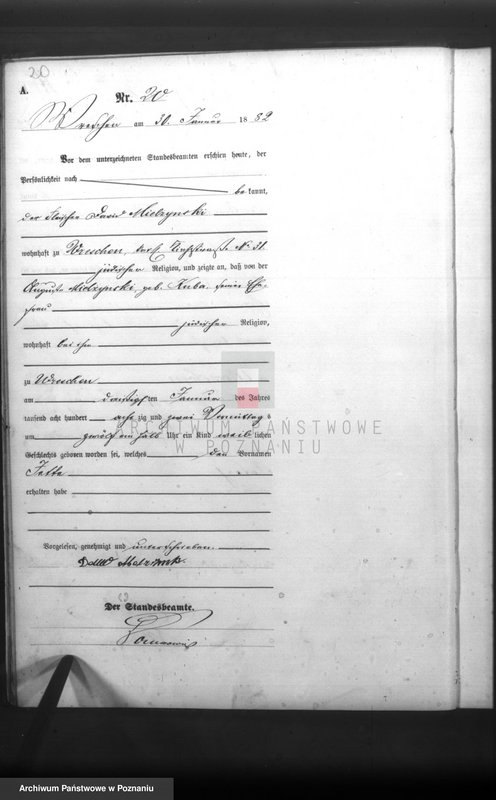 20
A.
Nr. 20
Wreschen am 30. Januar 1882
Vor dem unterzeichneten Standesbeamten erschien heute, der
Persönlichkeit nach
bekannt,
der Fleischer David Mielzynski
wohnhaft zu Wreschen, No 31.
jüdischer Religion, und zeigte an, daß von der
Auguste Mielzynski geb. Kuba seiner Ehe-
frau
jüdischer Religion,
wohnhaft bei ihm
zu Wreschen
am ten Januar des Jahres
tausend acht hundert achtzig und zwei Vormittags
um zwölf ein halb Uhr ein Kind weiblichen
Geschlechts geboren worden sei, welches den Vornamen
Jette
erhalten habe
Vorgelesen, genehmigt und unterschrieben.
David
Der Standesbeamte.
ARCHIWUM PAŃSTWOWE
W POZNANIU
Archiwum Państwowe w Poznaniu